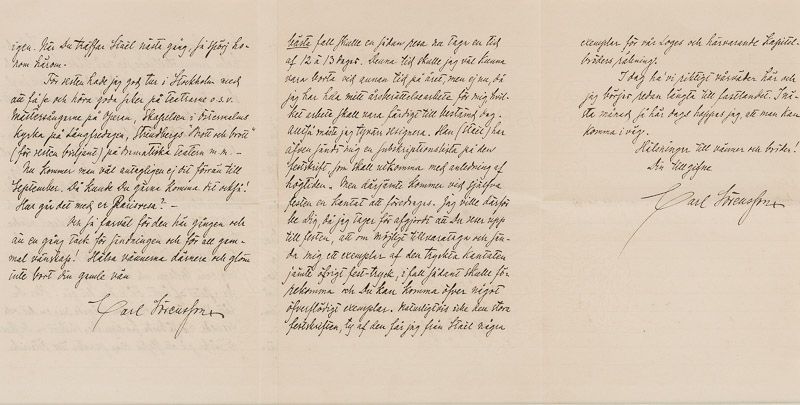 igen. När Du träffar Staël nästa gång, så spörj ho-
nom härom.
För resten hade jag god tur i Stockholm med
att få se och höra goda saker på teatrarne o.s.v.
Mästersångarne på Operan, Skapelsen i Östermalms
kyrka på Långfredagen, Strindbergs "Brott och brott"
(för resten briljant) på Dramatiska teatern m.m. –
Nu kommer man väl antagligen ej dit förrän till
September. Då kunde Du gärna komma dit också!
Hur går det med er
Och så farväl för den här gången och
än en gång tack för sändningen och för all gam-
mal vänskap! Hälsa vännerna därnere och glöm
inte bort din gamle vän
Carl Sörensson
bästa fall skulle en sådan resa nu taga en tid
af 12 à 13 dagar. Denna tid skulle jag väl kunna
vara borta vid annan tid på året, men ej nu, då
jag har hela mitt årsberättelsearbete för mig hvil-
ket arbete skall vara färdigt till bestämd dag.
Alltså måste jag tyvärr resignera. Han (Staël) har
äfven sändt mig en subskriptionslista på den
festskrift, som skall utkomma med anledning af
högtiden. Men därjämte kommer vid själfva
festen en kantat att föredragas. Jag ville därför
be Dig, då jag tager för afgjordt att Du reser upp
till festen, att om möjligt tillvarataga och sän-
da mig ett exemplar af den tryckta kantaten
jämte öfrigt fest-tryck, i fall sådant skulle fö-
rekomma och Du kan komma öfver något
öfverflödigt exemplar. Naturligtvis icke den stora
festskriften, ty af den får jag från Staël några
exemplar för vår Loges och härvarande Kapitel-
bröders räkning.
I dag ha vi riktigt vårväder här och
jag börjar redan längta till fastlandet. I nä-
sta månad så här dags hoppas jag att man kan
komma i väg.
Hälsningar till vänner och bröder!
Din tillgifne
Carl Sörensson